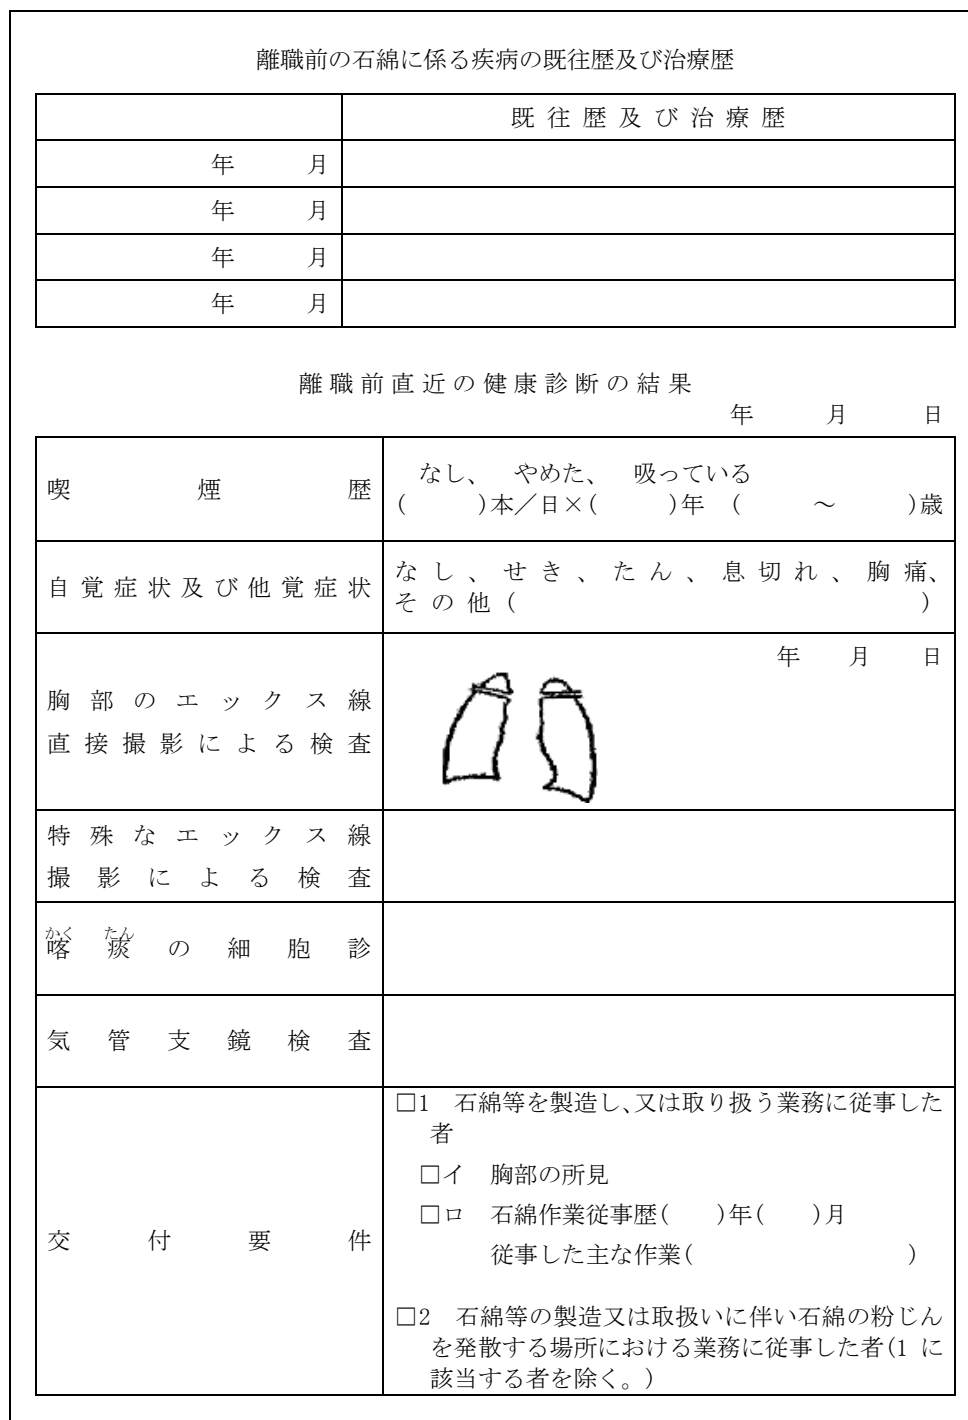 離職前の石綿に係る疾病の既往歴及び治療歴
既往歴及び治療歴
年　　月
年　　月
年　　月
年　　月
離職前直近の健康診断の結果
年　　月　　日
喫煙歴
なし、　やめた、　吸っている
(　　)本／日×(　　)年　(　　～　　)歳
自覚症状及び他覚症状
なし、せき、たん、息切れ、胸痛、
その他(　　　　　　　　)
年　　月　　日
胸部のエックス線
直接撮影による検査
特殊なエックス線
撮影による検査
かく　たん
喀痰の細胞診
気管支鏡検査
交付要件
□1　石綿等を製造し、又は取り扱う業務に従事した
者
□イ　胸部の所見
□ロ　石綿作業従事歴(　　)年(　　)月
従事した主な作業(　　　　　　　　)
□2　石綿等の製造又は取扱いに伴い石綿の粉じん
を発散する場所における業務に従事した者(1 に
該当する者を除く。)